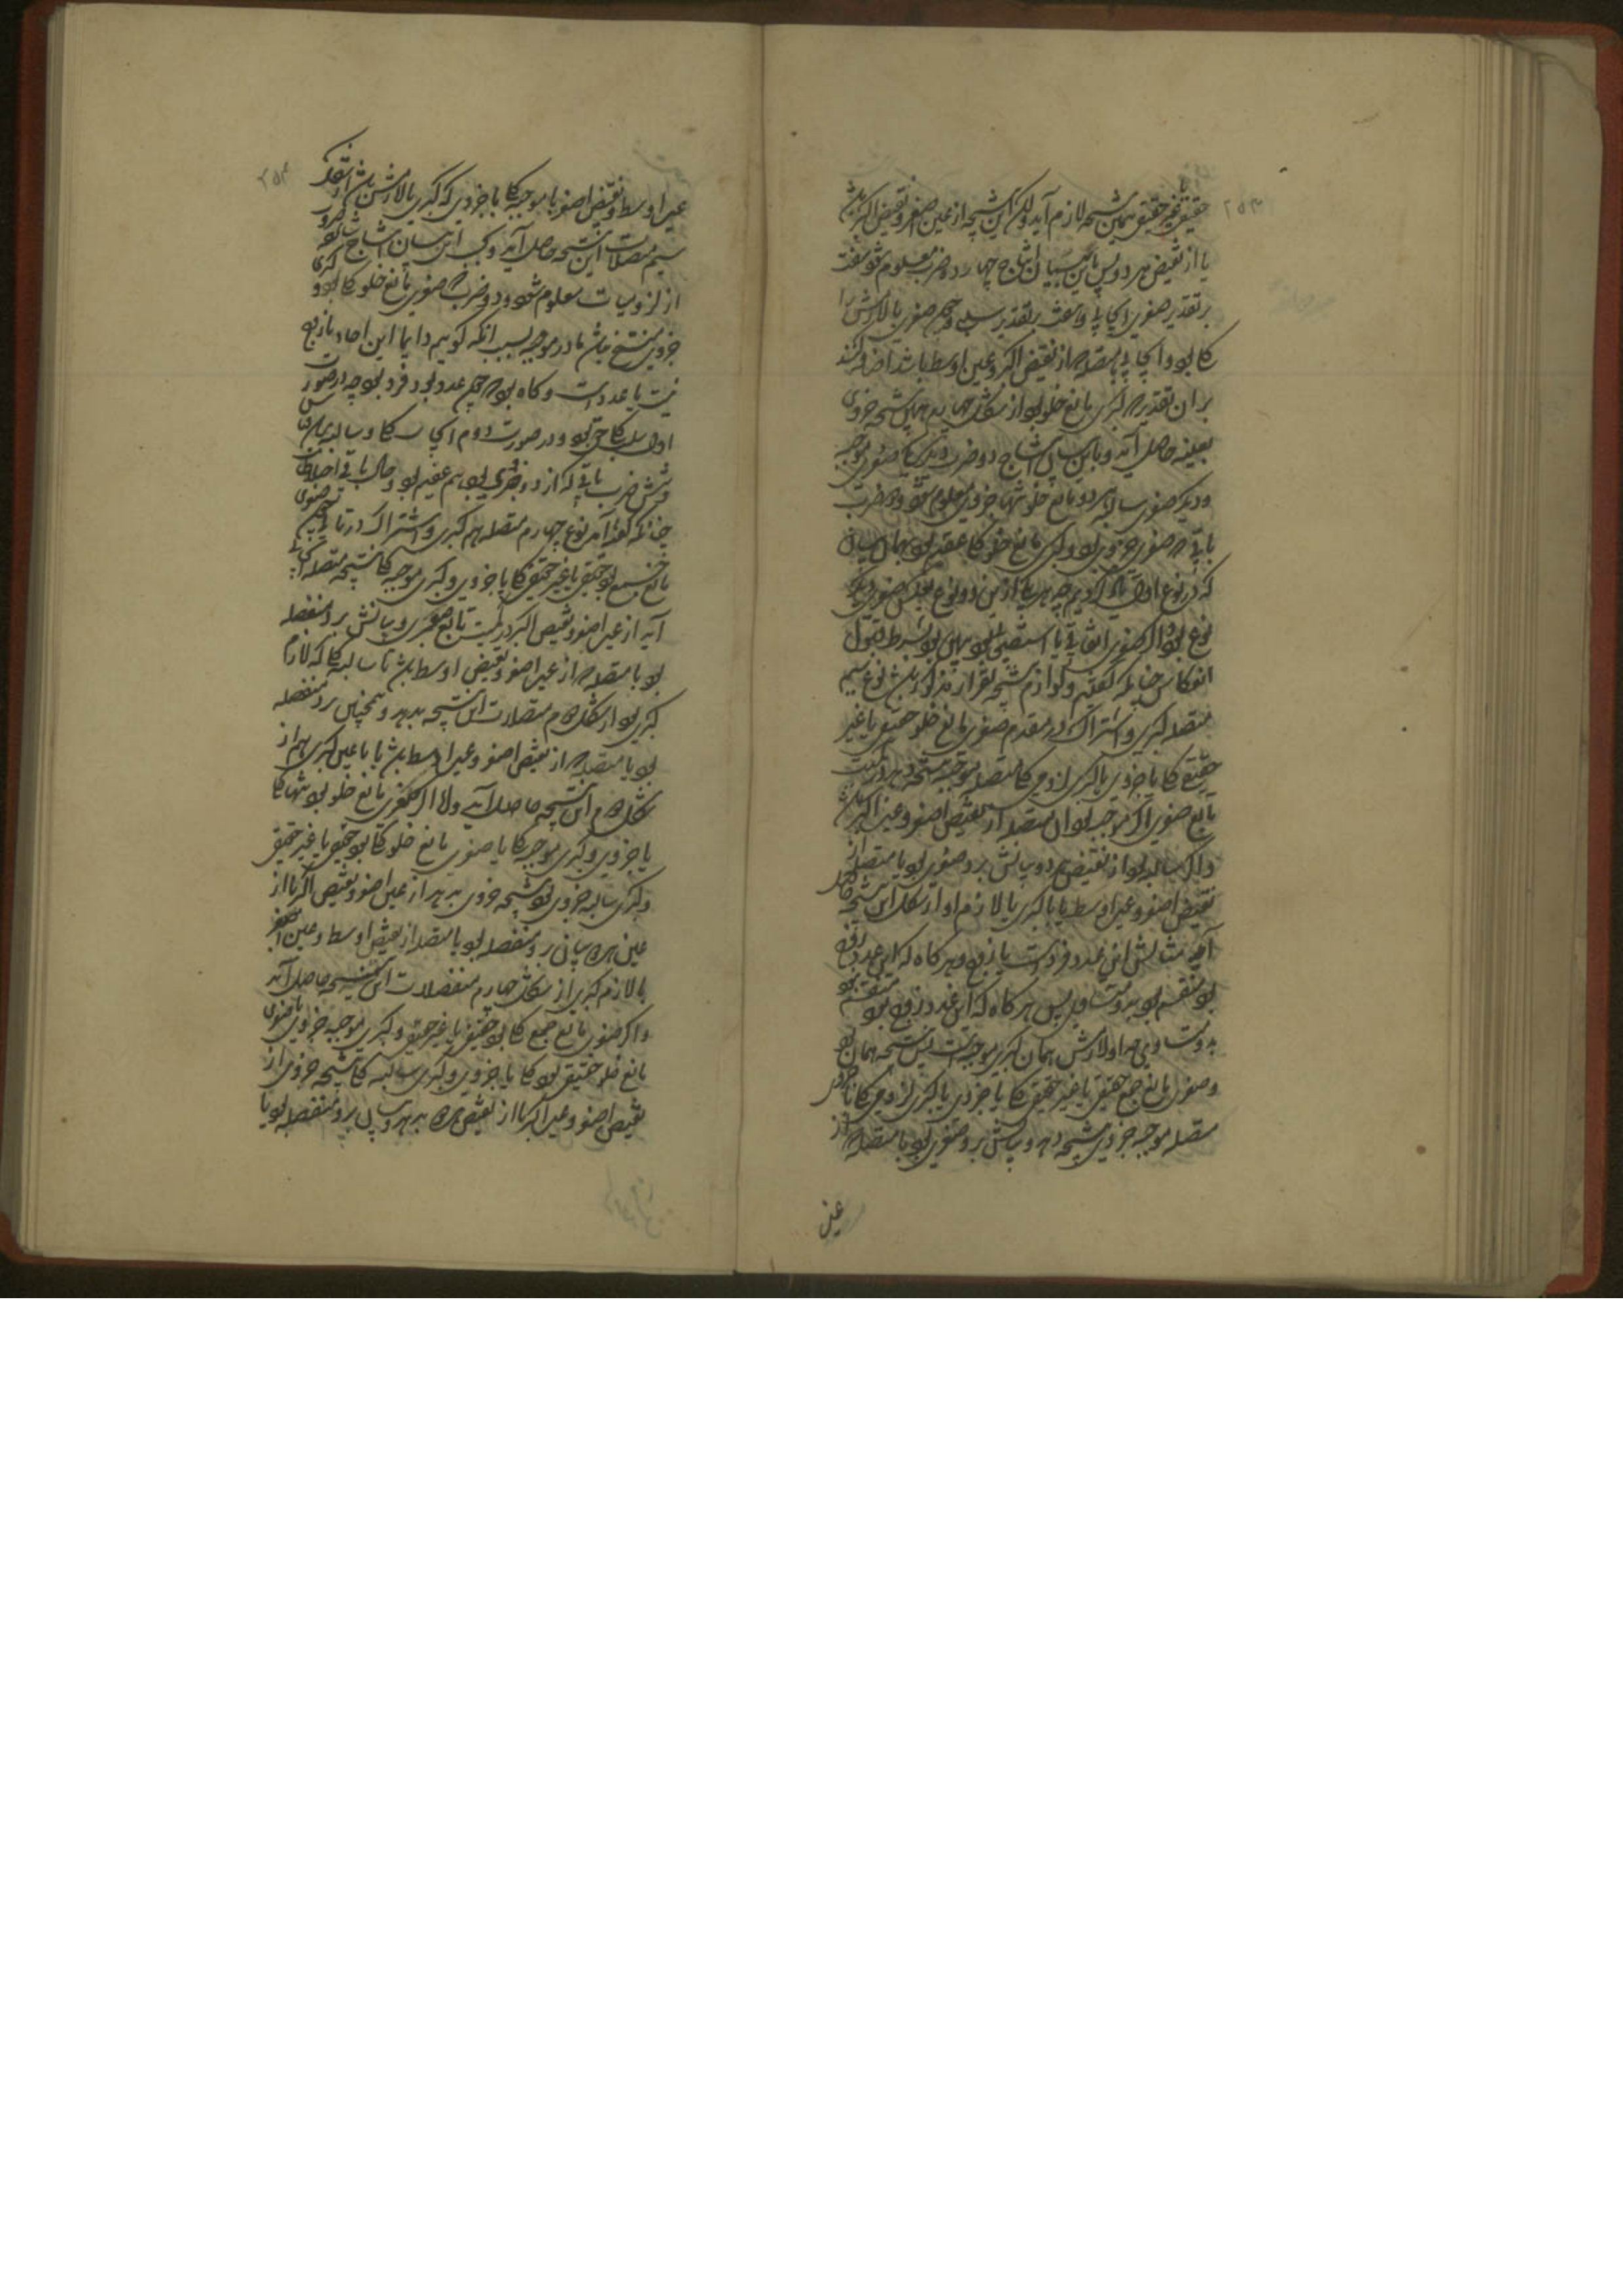 حقیقی یا غیر حقیقی همین نتیجه لازم آید ولیکن این نتیجه از عین اصغر و نقیض اکبر باشد
یا از نقیض هر دو پس باین بیان انتاج چهارده ضرب معلوم شود هفت
بر تقدیر صغری ایجابی و هفت بر تقدیر سلبی و چون صغری یا لازمش را
کلی بود ایجابی متصله از نقیض اکبر و عین اوسط باشد اضافه کنند
بران تقدیر که کبری مانع خلو بود از شکل همان نتیجه جزوی
بعینه حاصل آید و باین بیان انتاج دو ضرب دیگر یکی صغری موجبه
و دیگر صغری سالبه هر دو مانع خلو تنها جزوی معلوم شود و دو ضرب
باقی که صغری جزوی بود و کبری مانع خلو کلی عقیم بود بهمان بیان
که در نوع اول یاد کردیم چه هر یک ازین دو نوع بعکس صغری دیگر
نوع بود و اگر صغری اتفاقی یا استصحابی بود بهمان بود بشرط قبول
انعکاس چنانکه گفتیم و لوازم نتیجه بقرار مذکور باشد نوع سیم
متصله کبری و اشتراک در مقدم صغری مانع خلو حقیقی یا غیر
حقیقی کلی یا جزوی با کبری لزومی کلی متصله موجبه نتیجه دهد در کمیت
تابع صغری اگر موجبه بود آن متصله از نقیض اصغر و عین اکبر باشد
و اگر سالبه بود از نقیض هر دو بیانش برد صغری بود با متصله از
نقیض اصغر و عین اوسط تا با کبری یا لازم او از شکل اول این نتیجه حاصل
آید مثالش این عدد فرد است یا زوج و هر گاه که این عدد زوج
بود منقسم بود بدو متساوی پس هر گاه که این عدد زوج بود منقسم بود
بدو متساوی چه اول لازمش همان کبری موجبه است پس نتیجه همان بود
و صغری مانع جمع حقیقی یا غیر حقیقی کلی یا جزوی با کبری لزومی کلی یا جزوی
متصله موجبه جزوی نتیجه دهد و بیانش برد صغری بود با متصله از
عین
عین اوسط و نقیض اصغر با موجبه کلی یا جزوی که کبری یا لازمش باشد از شکل
سیم متصلات این نتیجه حاصل آید و باین بیان انتاج ضروب
از لزومیات معلوم شود و دو ضرب که صغری مانع خلو کلی بود و کبری
جزوی منتج نباشد اما در موجبه بسبب آنکه گوییم دایما این اما زوج
نیست یا عدد است و گاه بود که چون عدد بود فرد بود چه در صورت
اول سلب کلی حق بود و در صورت دوم ایجاب کلی و سالبه بهمان قیاس
و شش ضرب باقی که از دو جزوی بود هم عقیم بود و حال باقی اختلاطات
چنانکه گفته آمد نوع چهارم متصله هم کبری و اشتراک در تالی چون صغری
مانع جمع بود حقیقی یا غیر حقیقی کلی یا جزوی و کبری موجبه کلی نتیجه متصله
آید از عین اصغر و نقیض اکبر در کمیت تابع صغری و بیانش برد منفصله
بود با متصله که از عین اصغر و نقیض اوسط باشد تا با سالبه کلی که لازم
کبری بود از شکل دوم متصلات این نتیجه بدهد و همچنین برد منفصله
بود با متصله که از نقیض اصغر و عین اوسط باشد تا با عین کبری هم از
شکل دوم این نتیجه حاصل آید و اما اگر صغری مانع خلو بود تنها کلی
یا جزوی و کبری موجبه کلی یا صغری مانع خلو کلی بود حقیقی یا غیر حقیقی
و کبری سالبه جزوی بود نتیجه جزوی بدهد از عین اصغر و نقیض اکبر یا از
عین هر دو بیانش برد منفصله بود با متصله از نقیض اوسط و عین اصغر
با لازم کبری از شکل چهارم متصلات این نتیجه حاصل آید
و اگر صغری مانع جمع کلی بود حقیقی یا غیر حقیقی و کبری موجبه جزوی یا صغری
مانع خلو حقیقی بود کلی یا جزوی و کبری سالبه کلی نتیجه جزوی از
نقیض اصغر و عین اکبر یا از نقیض هر دو بدهد و بیانش برد منفصله بود با